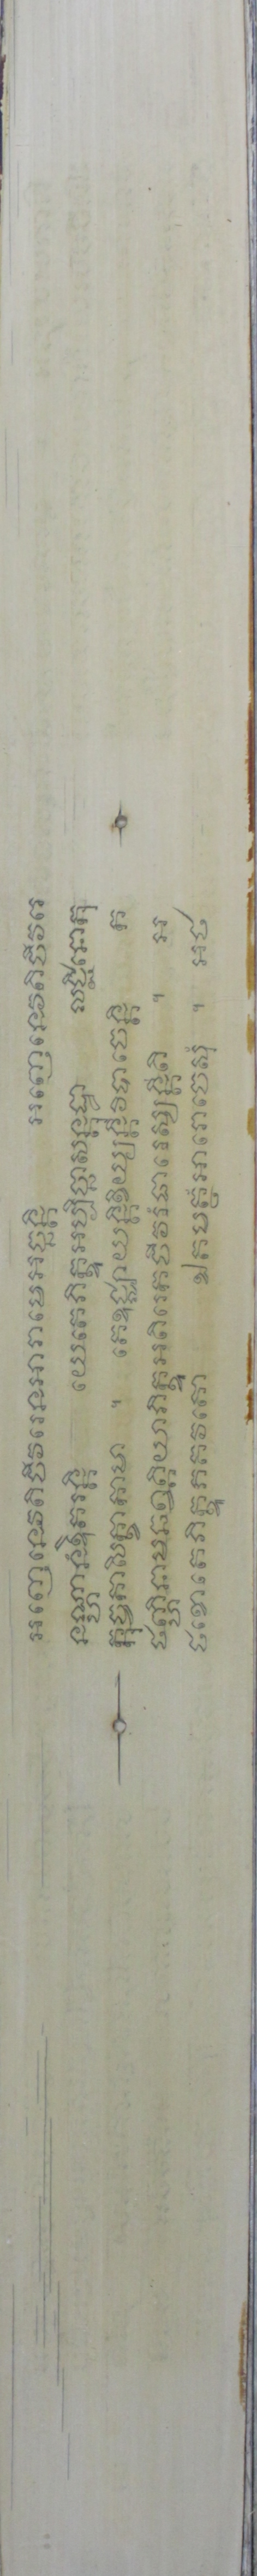 អញេនេវតិចីវរេនអារាមេអច្ឆន្តិ អញេនេវតិចីវរេ
នណ្ហានំឱតរន្តិ យេតេភិក្ខូអប្បិច្ឆាសន្តុដ្ឋា លជ្ជិនោកុ
ក្កុច្ចកាសិក្ខាកាមា ។ តេឧជ្ឈាយន្តិខិយ្យន្តិវិបាចេន្តិ ក
ថញ្ហិនាមឆព្វគ្គិយាភិក្ខូអតិរេកចីវរំធារេស្សន្តីតិ ។ អ
ថខោតេភិក្ខូភគវតោ ឯតមត្ថំអារោចេសុំ ។ អថ